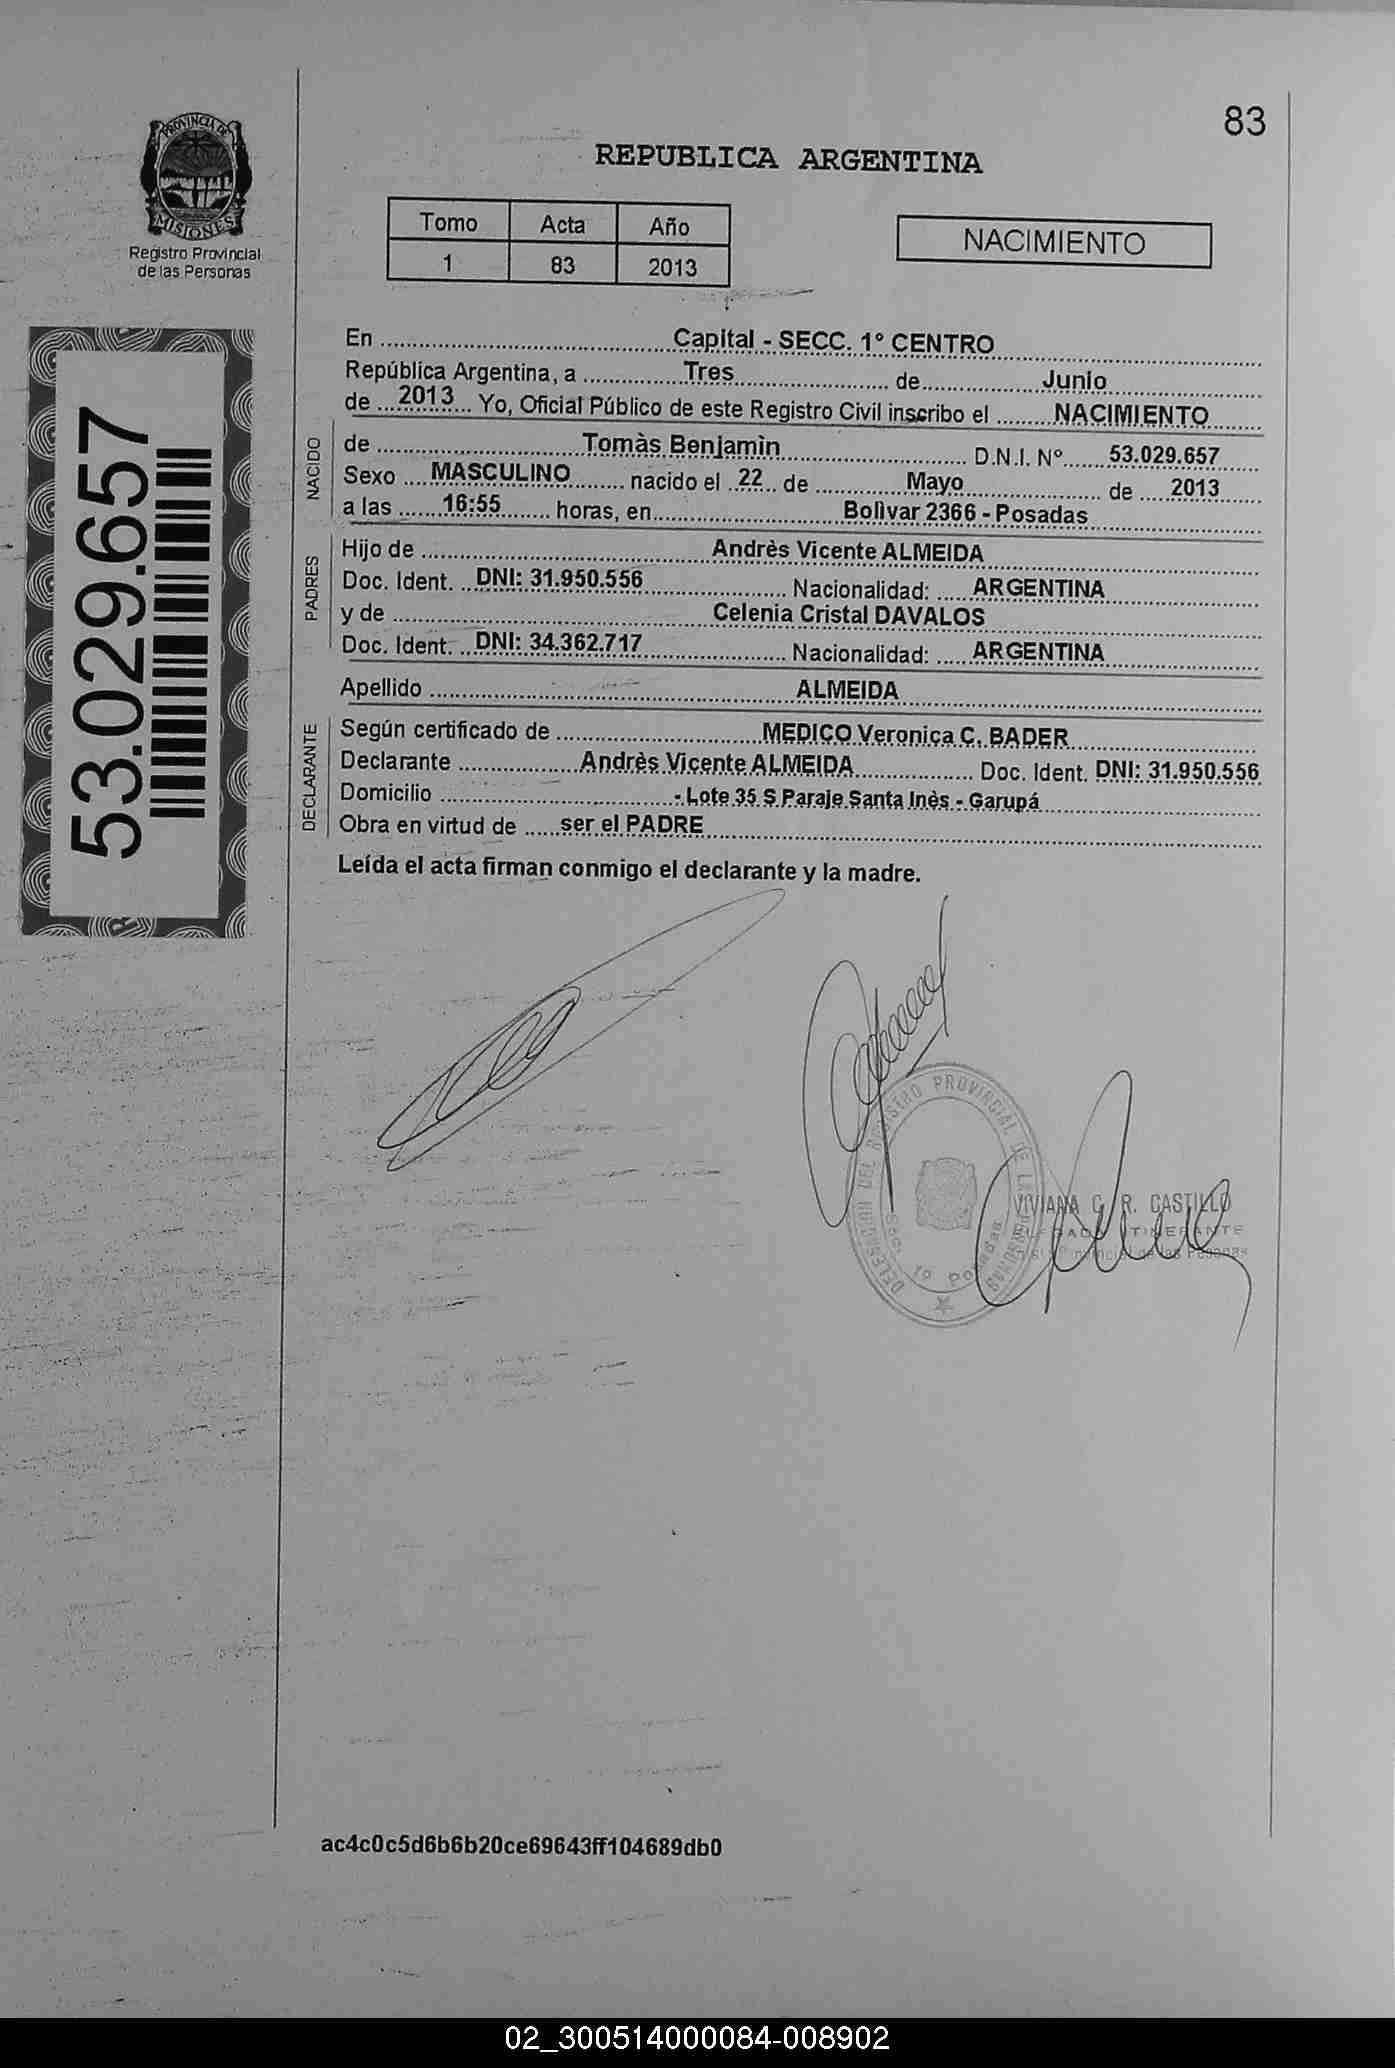 83
PROVINCIA DE
MISIONES
Registro Provincial
de las Personas
REPUBLICA ARGENTINA
Tomo Acta Año
1 83 2013
NACIMIENTO
53.029.657
En Capital - SECC. 1º CENTRO
República Argentina, a Tres de Junio
de 2013 Yo, Oficial Público de este Registro Civil inscribo el NACIMIENTO
NACIDO
de Tomàs Benjamìn D.N.I. Nº 53.029.657
Sexo MASCULINO nacido el 22 de Mayo de 2013
a las 16:55 horas, en Bolìvar 2366 - Posadas
PADRES
Hijo de Andrès Vicente ALMEIDA
Doc. Ident. DNI: 31.950.556 Nacionalidad: ARGENTINA
y de Celenia Cristal DAVALOS
Doc. Ident. DNI: 34.362.717 Nacionalidad: ARGENTINA
Apellido ALMEIDA
DECLARANTE
Según certificado de MEDICO Veronica C. BADER
Declarante Andrès Vicente ALMEIDA Doc. Ident. DNI: 31.950.556
Domicilio - Lote 35 S Paraje Santa Inès - Garupá
Obra en virtud de ser el PADRE
Leída el acta firman conmigo el declarante y la madre.
DELEGACION DEL REGISTRO PROVINCIAL DE LAS PERSONAS
Secc. 1º Posadas
VIVIANA C. R. CASTILLO
ac4c0c5d6b6b20ce69643ff104689db0
02_300514000084-008902